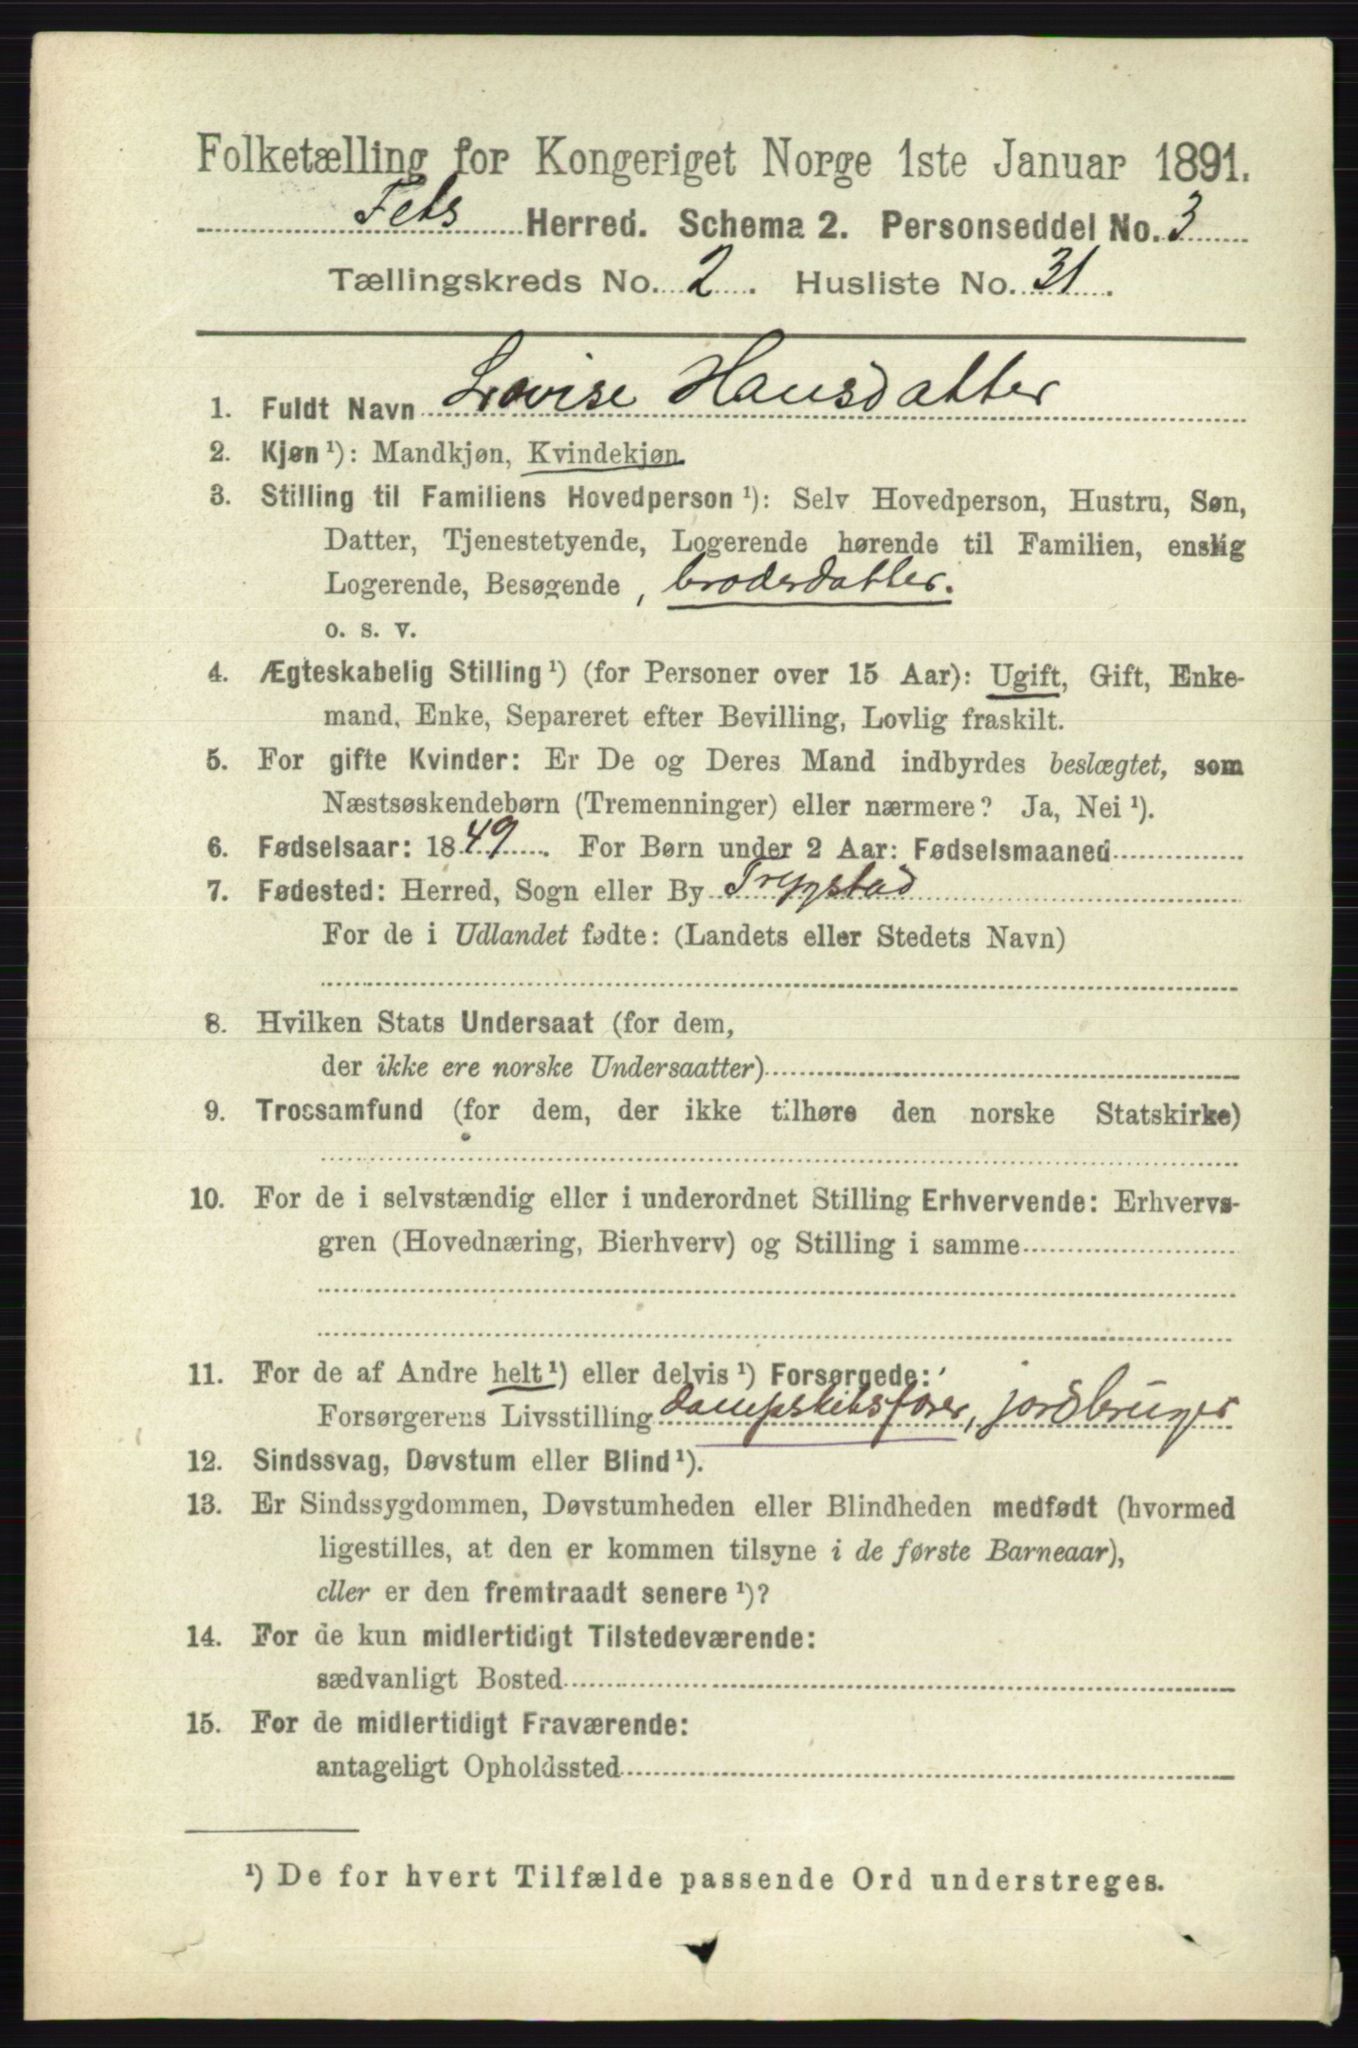 Folketælling for Kongeriget Norge 1ste Januar 1891.
Fets Herred. Schema 2. Personseddel No. 3
Tællingskreds No. 2. Husliste No. 31.
1. Fuldt Navn Lovise Hansdatter
2. Kjøn ¹): Mandkjøn, Kvindekjøn
3. Stilling til Familiens Hovedperson ¹): Selv Hovedperson, Hustru, Søn,
Datter, Tjenestetyende, Logerende hørende til Familien, enslig
Logerende, Besøgende, broderdatter.
o. s. v.
4. Ægteskabelig Stilling ¹) (for Personer over 15 Aar): Ugift, Gift, Enke-
mand, Enke, Separeret efter Bevilling, Lovlig fraskilt.
5. For gifte Kvinder: Er De og Deres Mand indbyrdes beslægtet, som
Næstsøskendebørn (Tremenninger) eller nærmere? Ja, Nei ¹).
6. Fødselsaar: 1849. For Børn under 2 Aar: Fødselsmaaned
7. Fødested: Herred, Sogn eller By Trygstad
For de i Udlandet fødte: (Landets eller Stedets Navn)
8. Hvilken Stats Undersaat (for dem,
der ikke ere norske Undersaatter)
9. Trossamfund (for dem, der ikke tilhøre den norske Statskirke)
10. For de i selvstændig eller i underordnet Stilling Erhvervende: Erhvervs-
gren (Hovednæring, Bierhverv) og Stilling i samme
11. For de af Andre helt ¹) eller delvis ¹) Forsørgede:
Forsørgerens Livsstilling dampskibsfører, jordbruger
12. Sindssvag, Døvstum eller Blind ¹).
13. Er Sindssygdommen, Døvstumheden eller Blindheden medfødt (hvormed
ligestilles, at den er kommen tilsyne i de første Barneaar),
eller er den fremtraadt senere ¹)?
14. For de kun midlertidigt Tilstedeværende:
sædvanligt Bosted
15. For de midlertidigt Fraværende:
antageligt Opholdssted
¹) De for hvert Tilfælde passende Ord understreges.